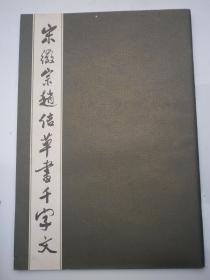 宋徽宗趙佶草書千字文